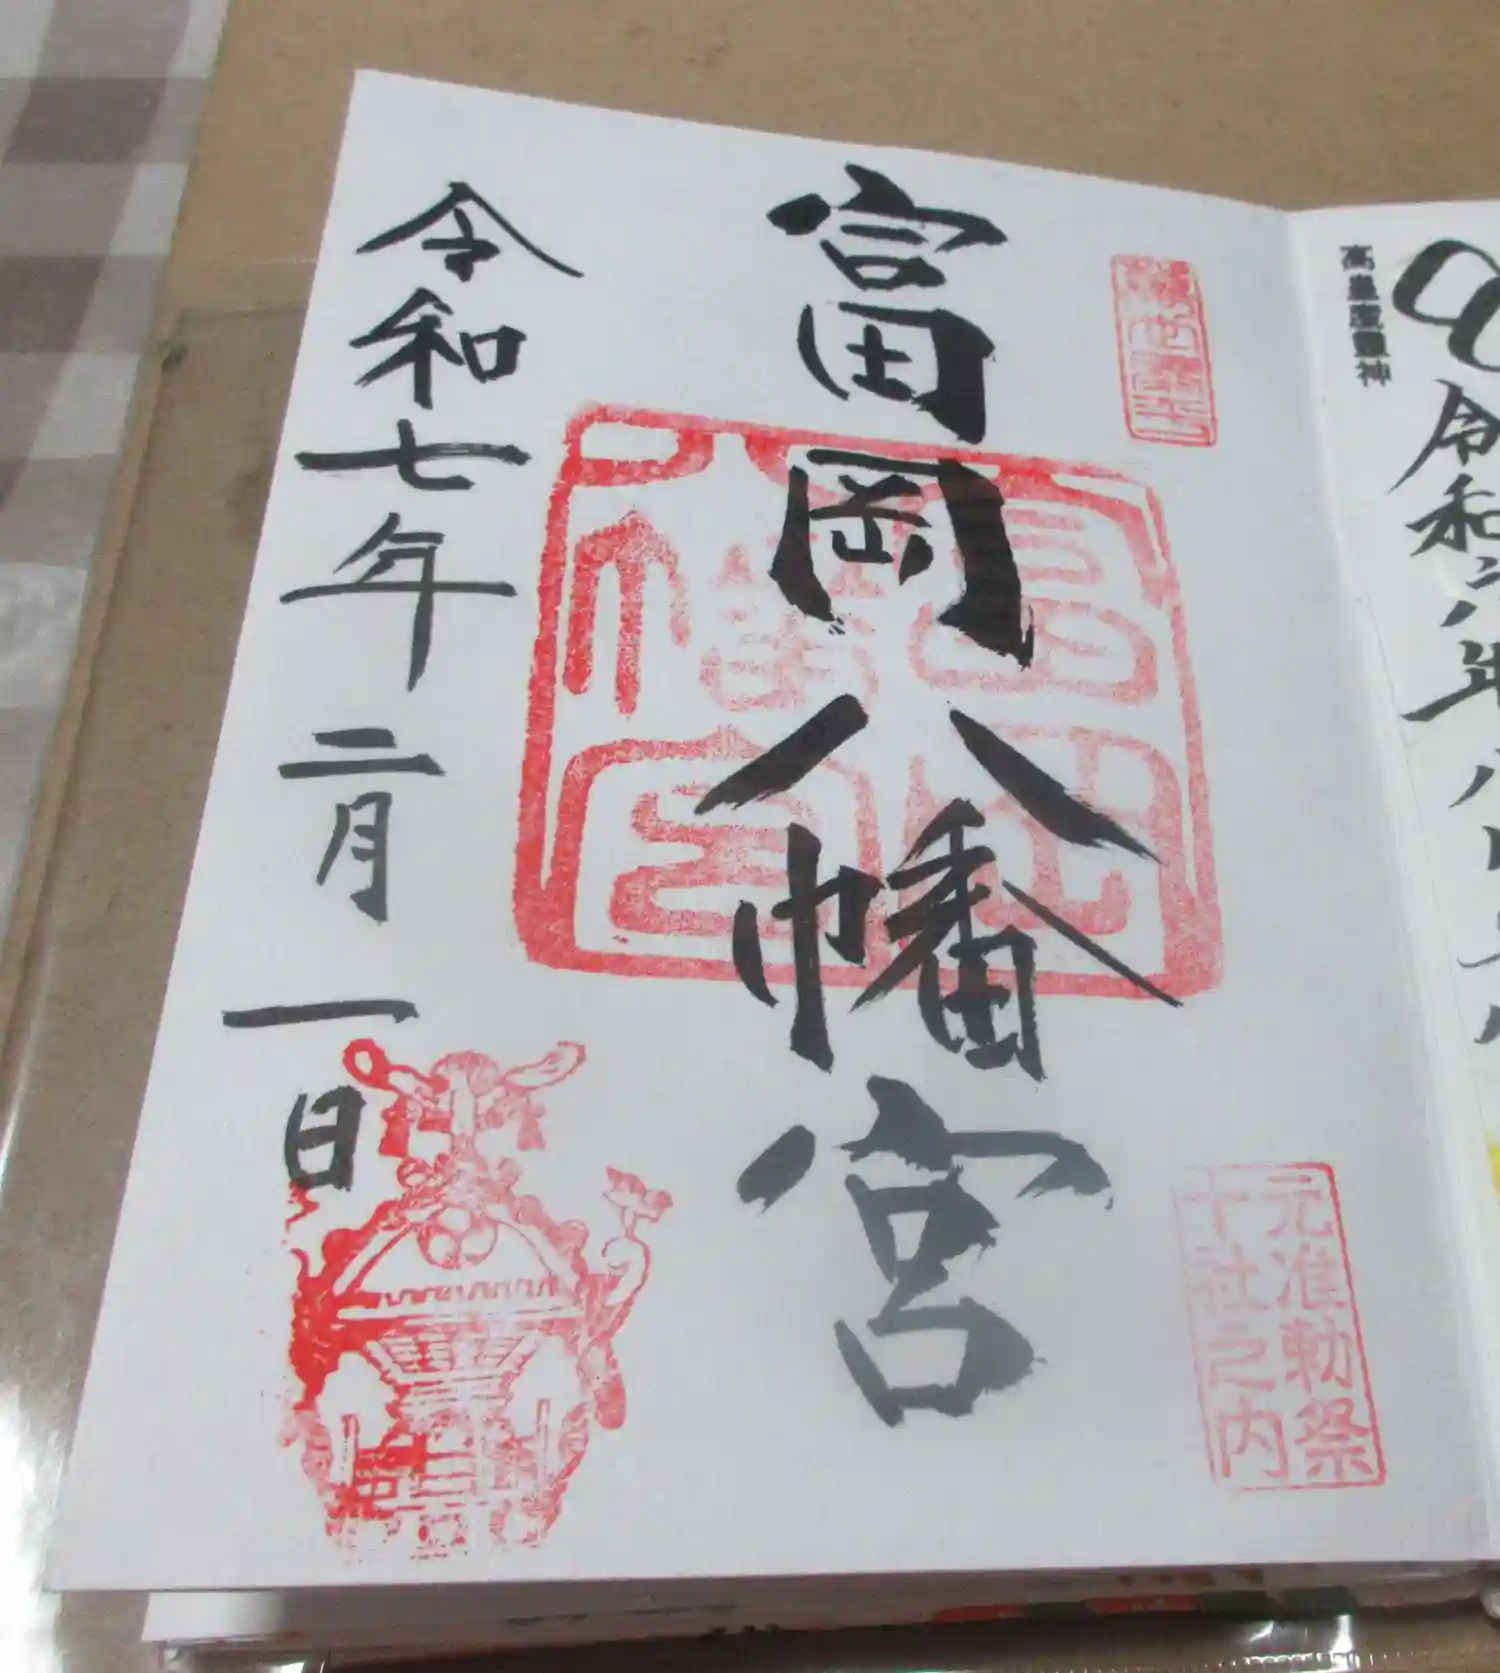 高皇産霊神
令和六年八月
元准勅祭
十社之内
富岡八幡宮
令和七年二月一日